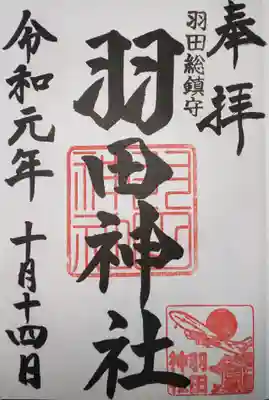 奉拝
羽田総鎮守
羽田神社
令和元年 十月十四日
羽田
神社